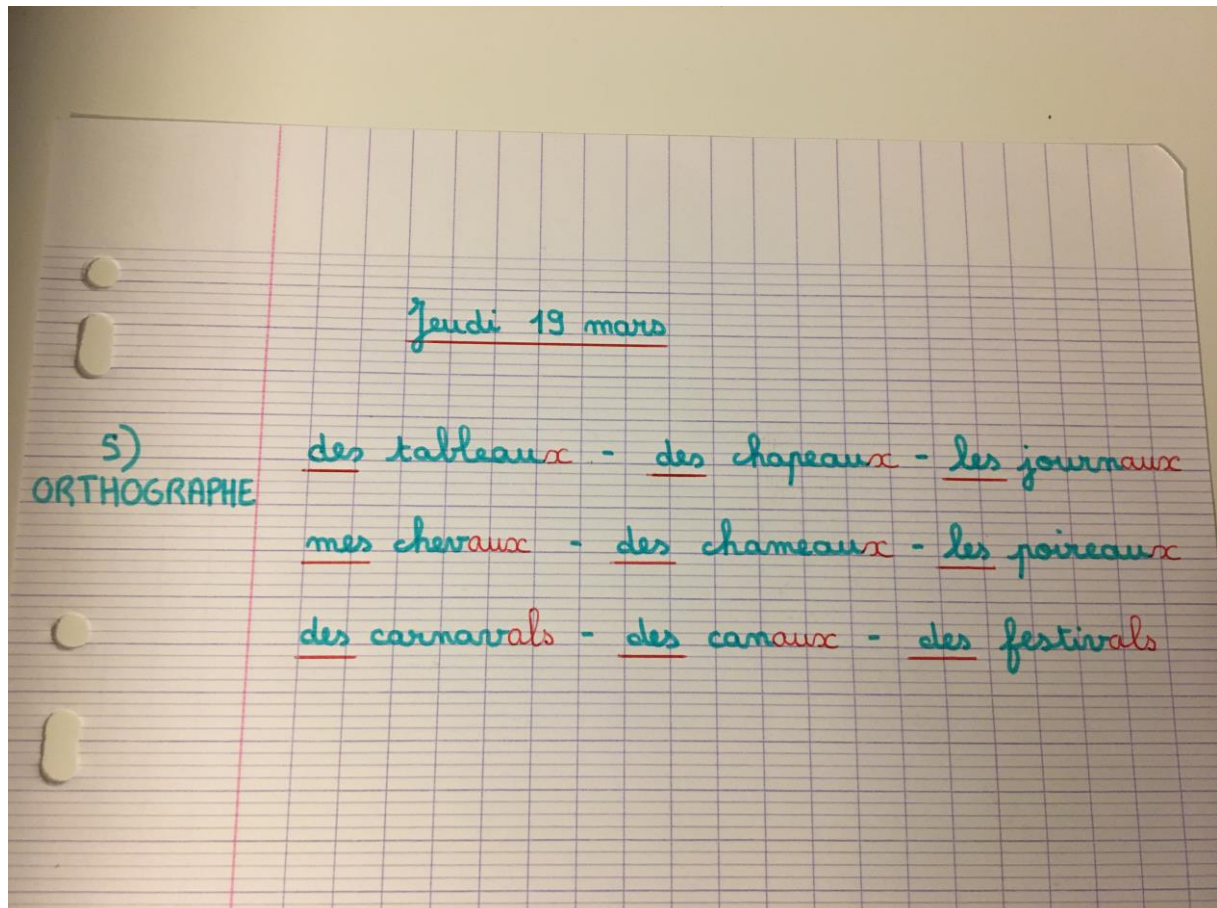 Jeudi 19 mars
5)
ORTHOGRAPHE
des tableaux - des chapeaux - les journaux
mes chevaux - des chameaux - les poireaux
des carnavals - des canaux - des festivals